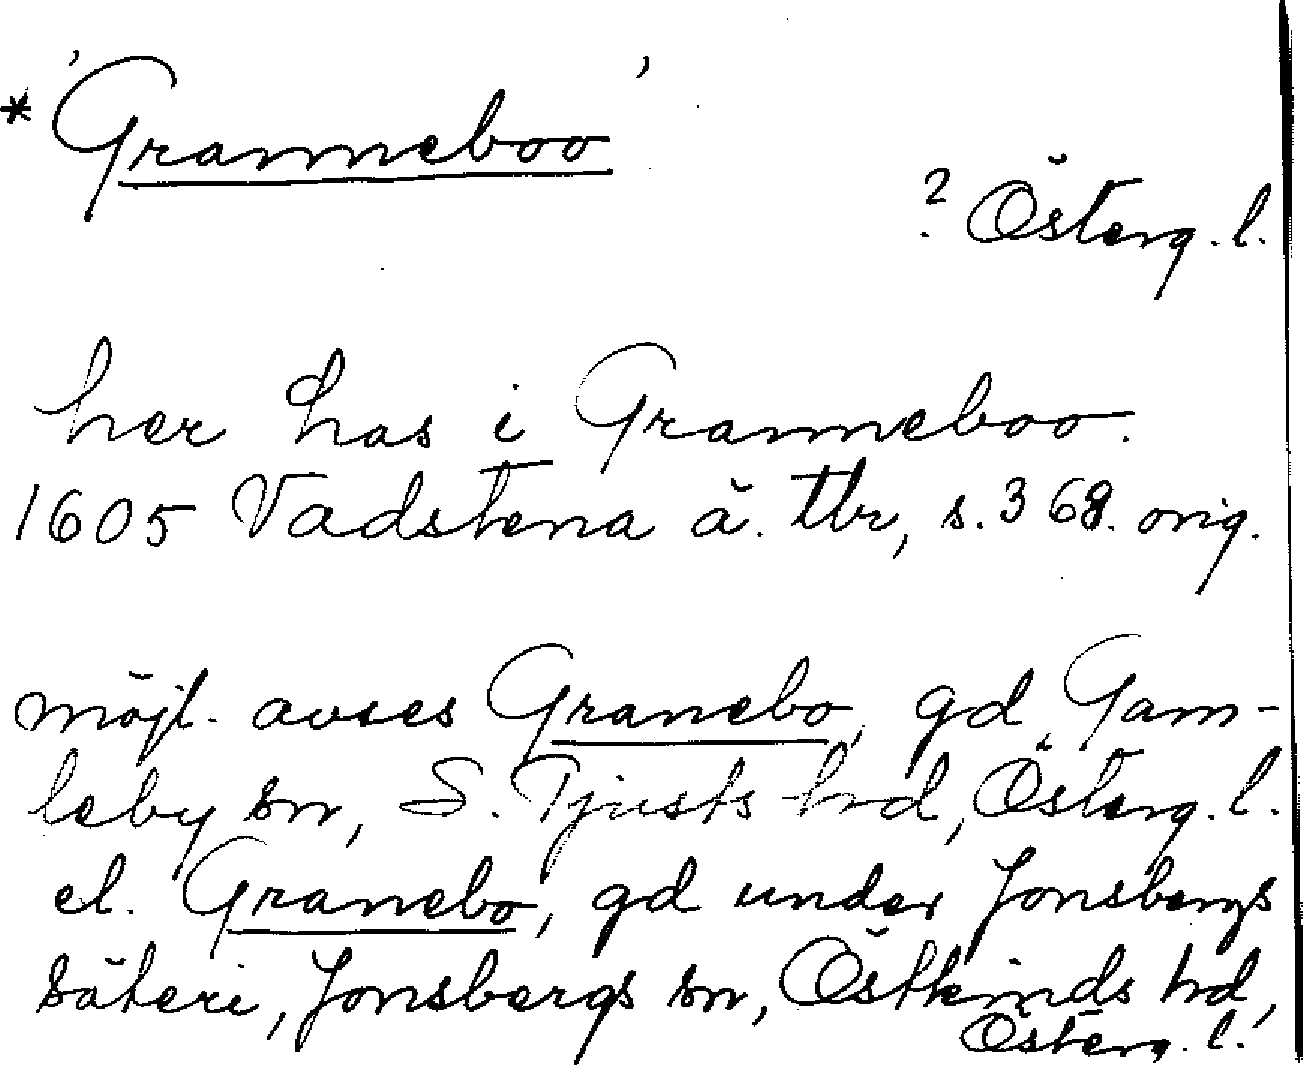 * 'Granneboo'
? Österg. l.
her has i Granneboo.
1605 Vadstena ä. tbr, s. 368. orig.
möjl. avses Granebo, gd, Gam-
leby sn, S. Tjusts hd, Österg. l.
el. Granebo, gd under Jonsbergs
säteri, Jonsbergs sn, Östkinds hd,
Österg. l.